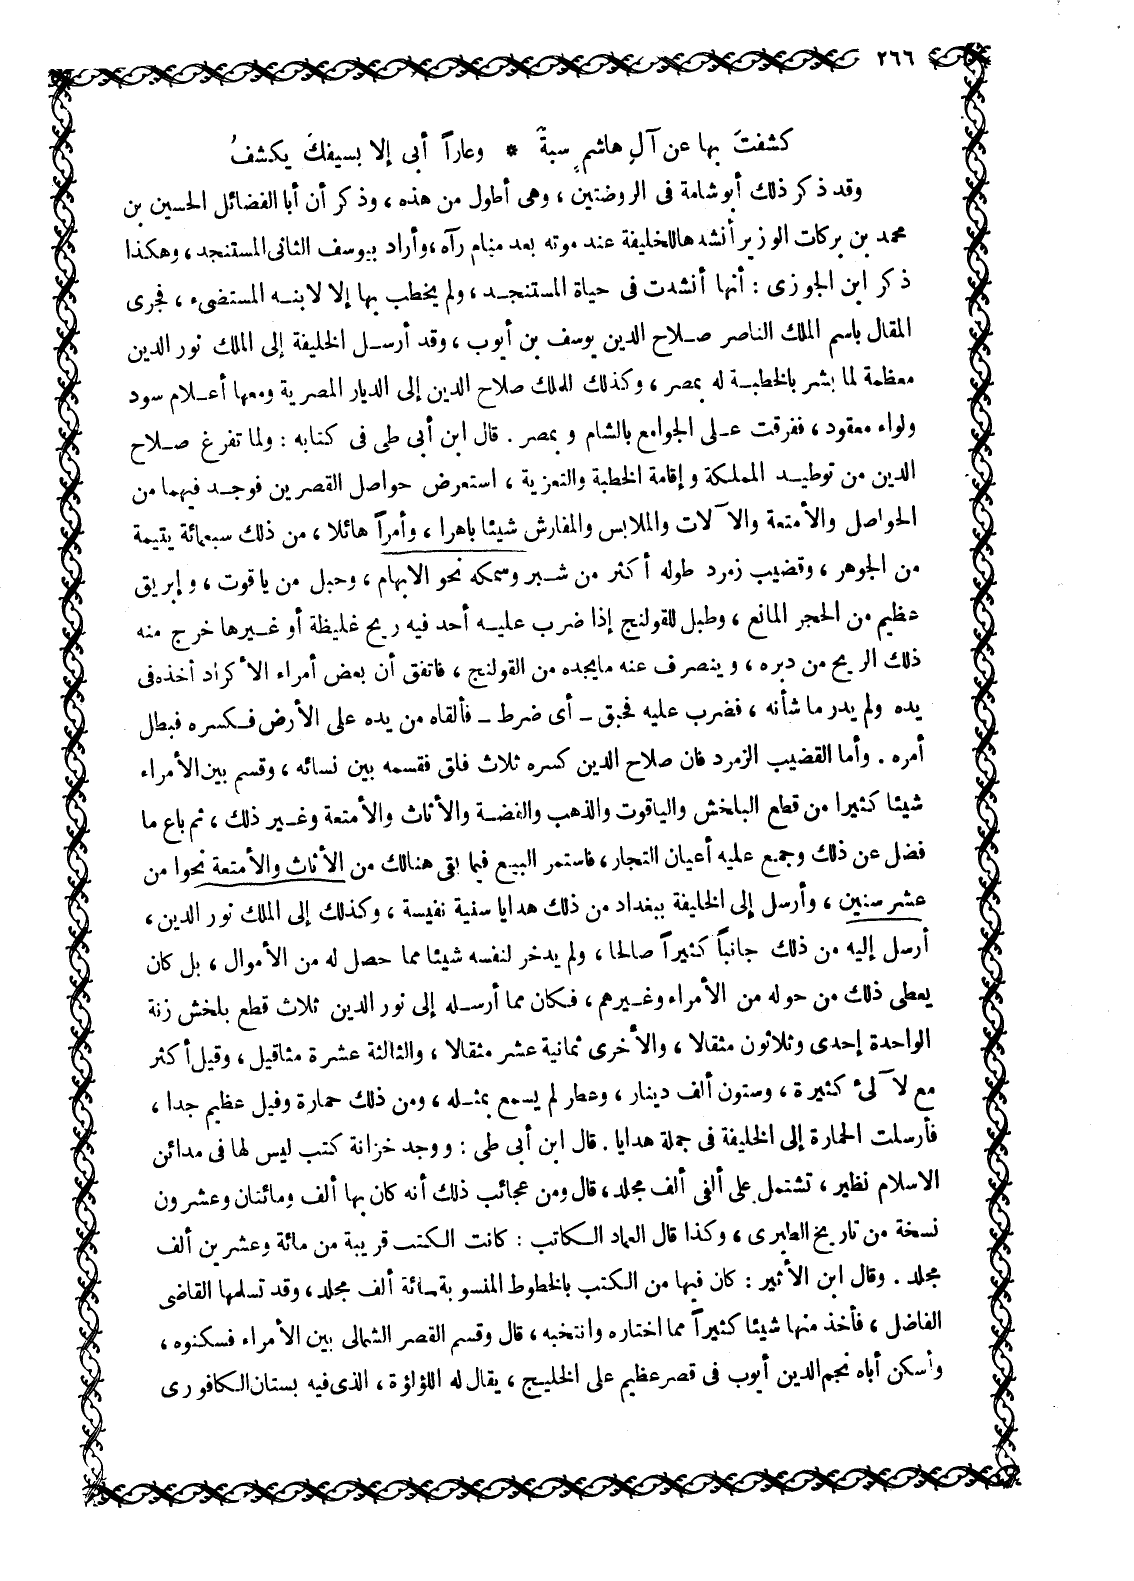 ٢٦٦
كشفتَ بها عن آلِ هاشمٍ سبةً * وعاراً أبى إلا بسيفكَ يكشفُ
وقد ذكر ذلك أبو شامة فى الروضتين ، وهى أطول من هذه ، وذكر أن أبا الفضائل الحسين بن
محمد بن بركات الوزير أنشدها للخليفة عند موته بعد منام رآه ، وأراد بيوسف الثانى المستنجد ، وهكذا
ذكر ابن الجوزى : أنها أنشدت فى حياة المستنجد ، ولم يخطب بها إلا لابنه المستضىء ، فجرى
المقال باسم الملك الناصر صلاح الدين يوسف بن أيوب ، وقد أرسل الخليفة إلى الملك نور الدين
معظمة لما بشر بالخطبة له بمصر ، وكذلك للملك صلاح الدين إلى الديار المصرية ومعها أعلام سود
ولواء معقود ، ففرقت على الجوامع بالشام و بمصر . قال ابن أبى طى فى كتابه : ولما تفرغ صلاح
الدين من توطيد المملكة و إقامة الخطبة والتعزية ، استعرض حواصل القصرين فوجد فيهما من
الحواصل والأمتعة والآلات والملابس والمفارش شيئا باهرا ، وأمراً هائلا ، من ذلك سبعمائة يتيمة
من الجوهر ، وقضيب زمرد طوله أكثر من شبر وسمكه نحو الابهام ، وحبل من ياقوت ، و إبريق
عظيم من الحجر المانع ، وطبل للقولنج إذا ضرب عليه أحد فيه ريح غليظة أو غيرها خرج منه
ذلك الريح من دبره ، وينصرف عنه مايجده من القولنج ، فاتفق أن بعض أمراء الأكراد أخذه فى
يده ولم يدر ما شأنه ، فضرب عليه فحبق ـ أى ضرط ـ فألقاه من يده على الأرض فكسره فبطل
أمره . وأما القضيب الزمرد فان صلاح الدين كسره ثلاث فلق فقسمه بين نسائه ، وقسم بين الأمراء
شيئا كثيرا من قطع البلخش والياقوت والذهب والفضة والأثاث والأمتعة وغير ذلك ، ثم باع ما
فضل عن ذلك وجمع عليه أعيان التجار ، فاستمر البيع فيما بقى هنالك من الأثاث والأمتعة نحوا من
عشر سنين ، وأرسل إلى الخليفة ببغداد من ذلك هدايا سنية نفيسة ، وكذلك إلى الملك نور الدين ،
أرسل إليه من ذلك جانباً كثيراً صالحا ، ولم يدخر لنفسه شيئا مما حصل له من الأموال ، بل كان
يعطى ذلك من حوله من الأمراء وغيرهم ، فكان مما أرسله إلى نور الدين ثلاث قطع بلخش زنة
الواحدة إحدى وثلاثون مثقالا ، والأخرى ثمانية عشر مثقالا ، والثالثة عشرة مثاقيل ، وقيل أكثر
مع لآلئ كثيرة ، وستون ألف دينار ، وعطر لم يسمع بمثله ، ومن ذلك حمارة وفيل عظيم جدا ،
فأرسلت الحمارة إلى الخليفة فى جملة هدايا . قال ابن أبى طى : ووجد خزانة كتب ليس لها فى مدائن
الاسلام نظير ، تشتمل على ألفى ألف مجلد ، قال ومن عجائب ذلك أنه كان بها ألف ومائتان وعشرون
نسخة من تاريخ الطبرى ، وكذا قال العماد الكاتب : كانت الكتب قريبة من مائة وعشرين ألف
مجلد . وقال ابن الأثير : كان فيها من الكتب بالخطوط المنسوبة مائة ألف مجلد ، وقد تسلمها القاضى
الفاضل ، فأخذ منها شيئا كثيراً مما اختاره وانتخبه ، قال وقسم القصر الشمالى بين الأمراء فسكنوه ،
وأسكن أباه نجم الدين أيوب فى قصر عظيم على الخليج ، يقال له اللؤلؤة ، الذى فيه بستان الكافورى